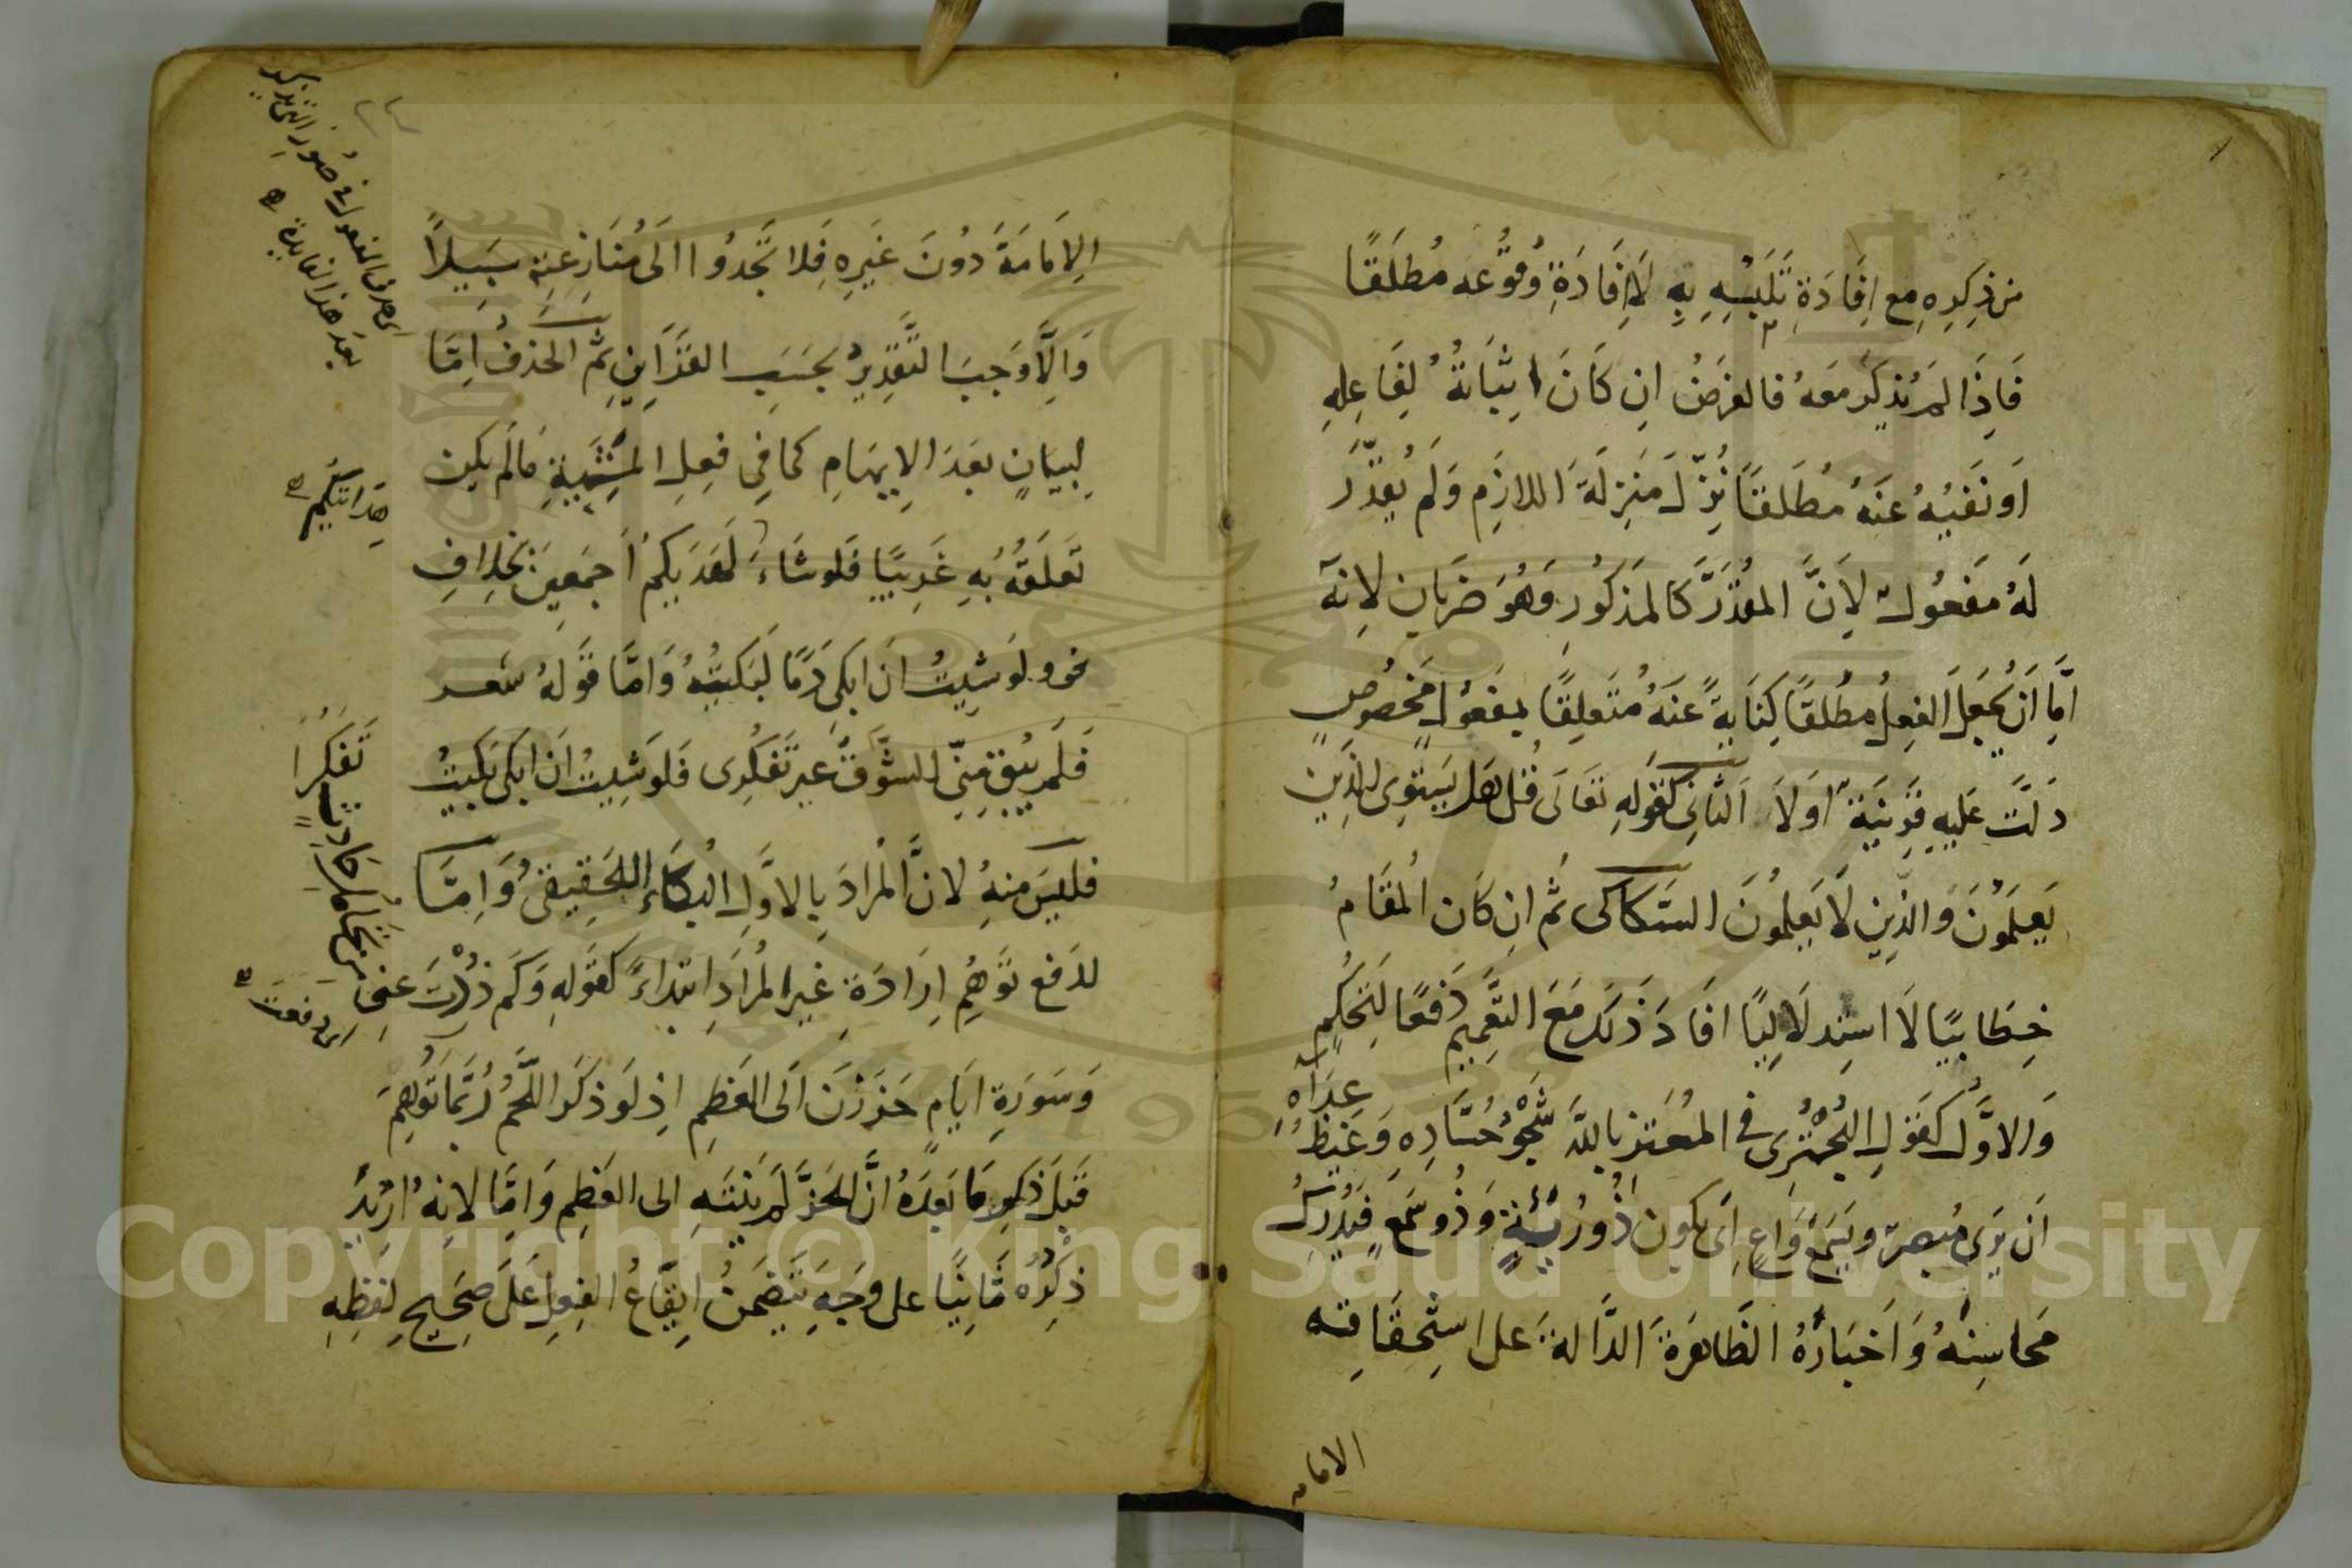 من ذِكرِهِ مع اِفَادَةِ تَلَبُّسِهِ بِهِ لَا اِفَادَةِ وُقُوْعه مُطلَقًا
فَاِذَا لَم يُذكَر مَعَهُ فالغرَضُ اِن كَانَ اِثبَاتهُ لِفَاعِلِهِ
اَو نَفيُهُ عَنهُ مُطلَقًا نُزِّلَ مَنزِلَةَ اللازِمِ وَلَم يُقدَّر
لَهُ مَفعُول لِاَنَّ المقدَّرَ كَالمَذكُورِ وَهُوَ ضَربَانِ لانهُ
اِمَّا اَن يُجعَلَ الفِعلُ مُطلقًا كِنَايةً عَنهُ مُتَعلِقًا بِمَفعُولٍ مَخصُوصٍ
دَلَّت عَلَيهِ قَرِينَة اَولَا الثانِي كَقَولِهِ تَعَالَى قُل هَل يَستَوِى الَّذِين
يَعلَمُوْنَ وَالذِّينَ لَا يَعلمُونَ السَّكاكى ثُمَّ اِن كَانَ المَقَامُ
خِطَابيًا لَا استِدلَالِيًا افَادَ ذَلِكَ مَعَ التَّعمِيمِ دَفعًا لِتَحَكُّمٍ
وَالاوَّلُ كَقَولِ البُحْتُرِى فى المُعتَز باللّه شَجْوُ حُسَّادِهِ وَغَيظُ عِدَاهُ
اَن يَرَى مُبصِرٌ ويَسمَعُ وَاعٍ اَى يكون ذُو رُؤيَةٍ وَذُو سَمعٍ فَيُدرِكَ
مَحَاسِنَهُ وَاَخبَارَهُ الظَّاهِرَةَ الدَّالةَ عَلى استِحقَاقِه
الامامه
الاِمَامَةَ دُونَ غَيرِهِ فَلا تَجِدُوا اِلَى مُنَازعَتِهِ سَبِيلاً
وَاِلَّا وَجَبَ التَّقدِيرُ بِحَسَبِ القَرَائِنِ ثُمَّ الحَذفُ اِمَّا
لِبَيَانٍ بَعدَ الاِبهَامِ كمَا فِى فِعلِ المَشِيئَةِ مَا لَم يكن
تَعَلقُهُ بهِ غَرِيبًا فَلَو شَاءَ لَهَدَيكُم اَجمَعِينَ بخِلَافِ
نحو ولَو شِيتُ اَن اَبكى دَمًا لَبَكيتُهُ وَامَّا قَولهُ شعر
فَلَم يُبقِ مِنِّى الشَّوقُ غَير تَفَكُرِى فَلَو شِيتُ اَن اَبكى بَكَيتُ
تَفَكرَا
فلَيسَ مِنهُ لانَّ المُرَادَ بِالاوَّلِ البُكَاءُ الحَقِيقِىُّ وَاِمَّا
لدَفعِ تَوَهُّمِ اِرَادَةِ غَيرِ المُرَادِ ابتدَاءً كَقَولِهِ وَكَم ذُدْتَ عَنِى مِن تَحامُلِ حَادِثٍ
وَسَورَةِ ايَامٍ حَزَزنَ اِلَى العَظمِ اِذ لَو ذكرَ اللَّحمُ رُبَّمَا تُوُهِّمَ
قَبلَ ذكرِ مَا بَعدَهُ انَّ الحَزَّ لَم يَنتَهِ اِلى العَظمِ وَاِمَّا لاِنهُ اُرِيدَ
ذِكْرُهُ ثَانِيًا على وَجهٍ يتَضمَّنُ اِيقَاعُ الفِعلِ عَلَى صَرِيحِ لَفظِهِ
اى حذف المفعول فى صُوَرِ التى يذكر
بعد هذا لفايدة
هدايتكم
اى دفعت
٢٤
Copyright © King Saud University